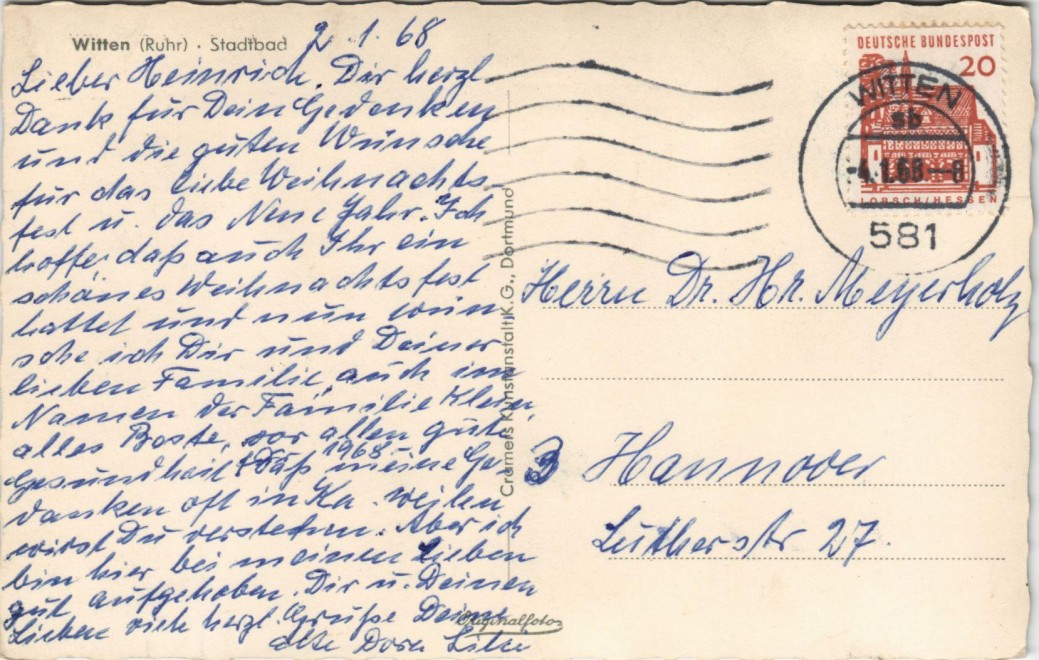 Witten (Ruhr) · Stadtbad
2.1.68
Lieber Heinrich. Dir herzl.
Dank für Dein Gedenken
und die guten Wünsche
für das liebe Weihnachts-
fest u. das Neue Jahr. Ich
hoffe, daß auch Ihr ein
schönes Weihnachtsfest
hattet und nun wün
sche ich Dir und Deiner
lieben Familie, auch im
Namen der Familie Klein,
alles Beste, vor allen gute
Gesundheit für 1968. Daß meine Ge-
danken oft in Ha. weilen
wirst Du verstehen. Aber ich
bin hier bei meinen Lieben
gut aufgehoben. Dir u. Deinen
Lieben viele herzl. Grüße Deine
alte Dora
Cramers Kunstanstalt K.G., Dortmund
Originalfoto
DEUTSCHE BUNDESPOST
20
LORSCH/HESSEN
WITTEN
sb
-4.1.68-8
581
Herrn Dr. Hr. Meyerholz
3 Hannover
Lutherstr 27.